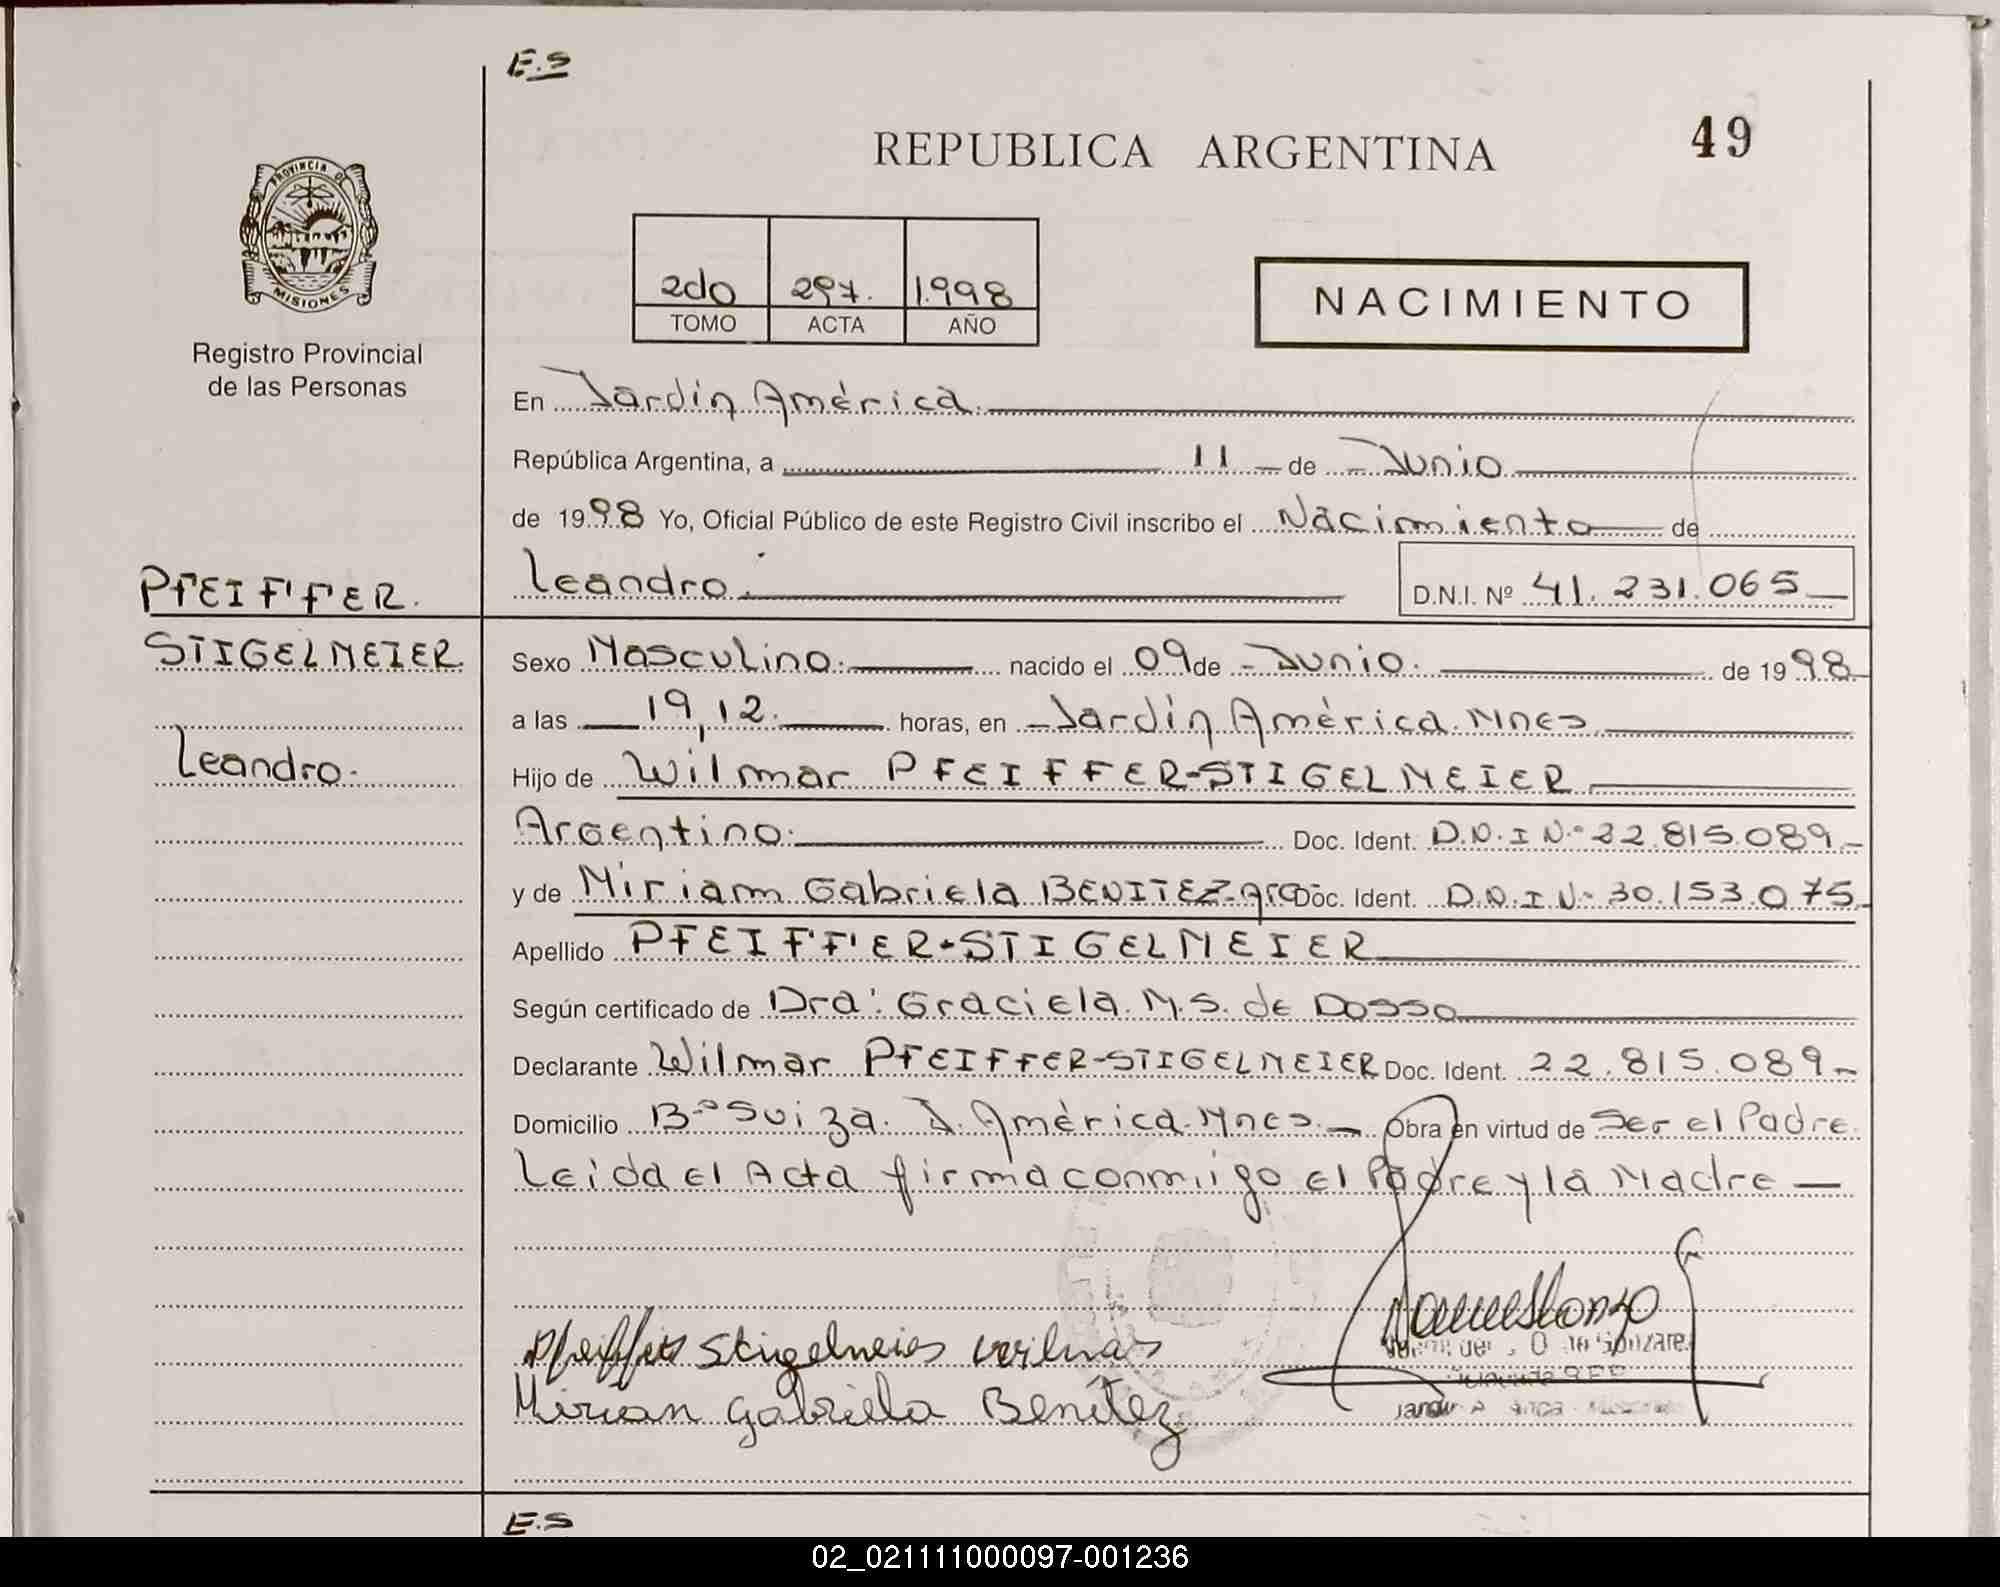 E.S
REPUBLICA ARGENTINA
49
PROVINCIA DE
MISIONES
Registro Provincial
de las Personas
2do 297. 1.998
TOMO ACTA AÑO
NACIMIENTO
En Jardín América.
República Argentina, a 11 de Junio
de 1998 Yo, Oficial Público de este Registro Civil inscribo el Nacimiento de
Leandro.
D.N.I. Nº 41.231.065
PFEIFFER.
STIGELMEIER
Leandro.
Sexo Masculino. nacido el 09 de Junio. de 1998
a las 19,12. horas, en Jardín América. Mnes
Hijo de Wilmar PFEIFFER-STIGELMEIER
Argentino. Doc. Ident. D.N.I N.º 22.815.089
y de Miriam Gabriela BENITEZ. Doc. Ident. D.N.I N.º 30.153.075
Apellido PFEIFFER-STIGELMEIER
Según certificado de Dra: Graciela M.S. de Dosso
Declarante Wilmar PFEIFFER-STIGELMEIER Doc. Ident. 22.815.089
Domicilio Bº Suiza. J. América. Mnes. Obra en virtud de Ser el Padre.
Leida el Acta firma conmigo el Padre y la Madre
Mirian Gabriela Benítez
E.S
02_021111000097-001236